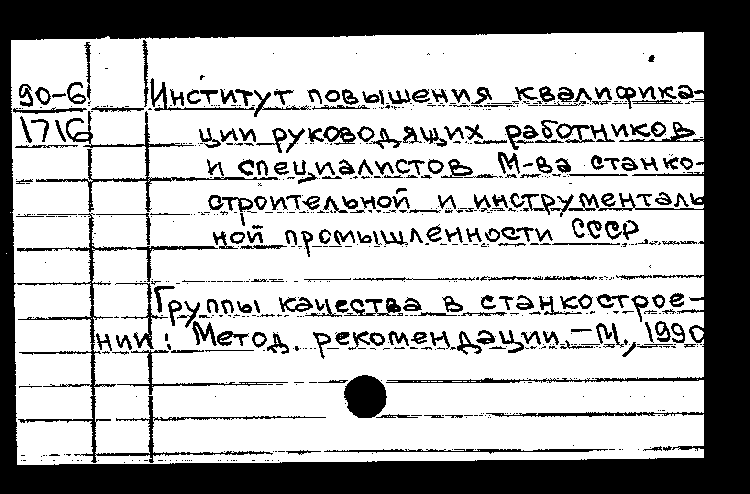 90-6 Институт повышения квалифика-
1716 ции руководящих работников
и специалистов М-ва станко-
строительной и инструменталь
ной промышленности СССР.
Группы качества в станкострое-
нии: Метод. рекомендации. – М., 1990